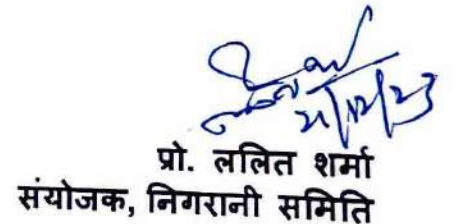 21/12/23
प्रो. ललित शर्मा
संयोजक, निगरानी समिति